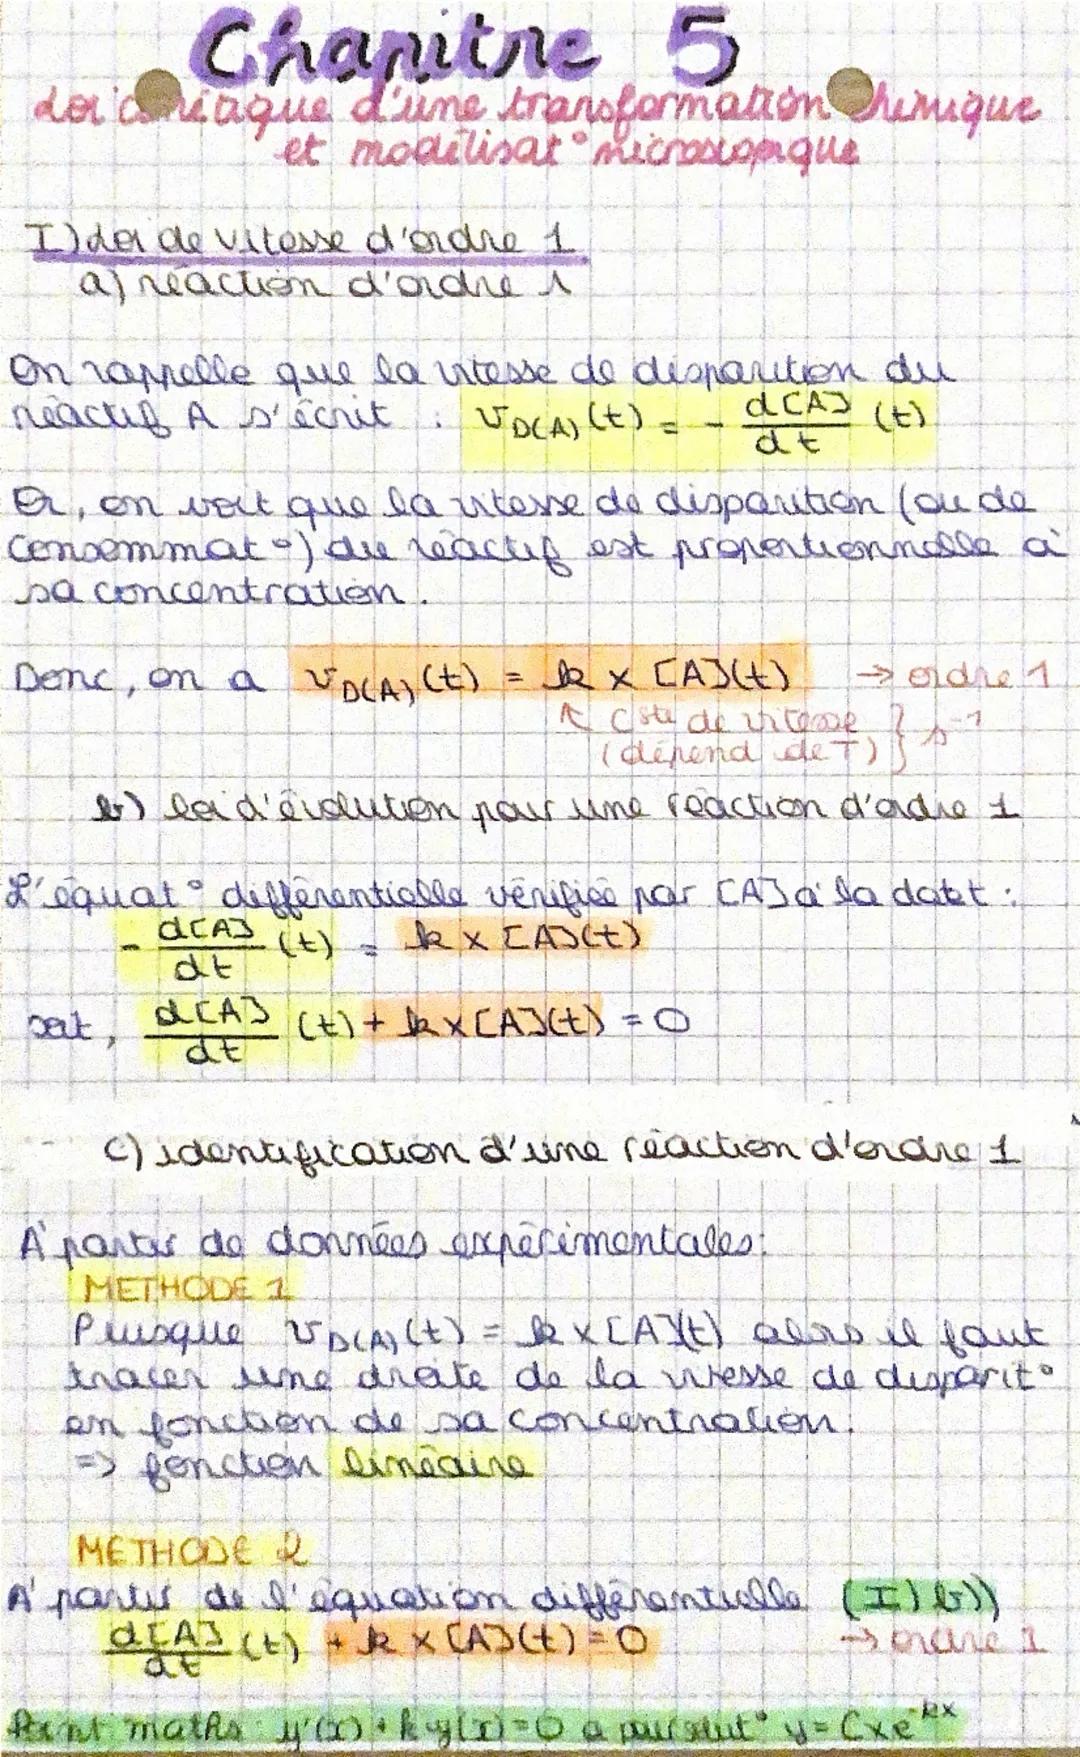 Chapitre 5
Loi cinétique d'une transformation chimique
et modélisat° microscopique
I) Loi de vitesse d'ordre 1
a) réaction d'ordre 1
On rappelle que la vitesse de disparition du
réactif A s'écrit : v_D(A) (t) = - d[A]/dt (t)
Or, on voit que la vitesse de disparition (ou de
consommat°) du réactif est proportionnelle à
sa concentration.
Donc, on a v_D(A) (t) = k × [A](t) → ordre 1
↖ Cste de vitesse
(dépend de T) } s⁻¹
b) loi d'évolution pour une réaction d'ordre 1
L'équat° différentielle vérifiée par [A] à la date t :
- d[A]/dt (t) = k × [A](t)
soit, d[A]/dt (t) + k × [A](t) = 0
c) identification d'une réaction d'ordre 1
A partir de données expérimentales:
METHODE 1
Puisque v_D(A) (t) = k × [A](t) alors il faut
tracer une droite de la vitesse de disparit°
en fonction de sa concentration.
=> fonction linéaire
METHODE 2
A partir de l'équation différentielle (I) b))
d[A]/dt (t) + k × [A](t) = 0 → ordre 1
Point maths : y'(x) + k y(x) = 0 a pour solut° y = C×e^-kx